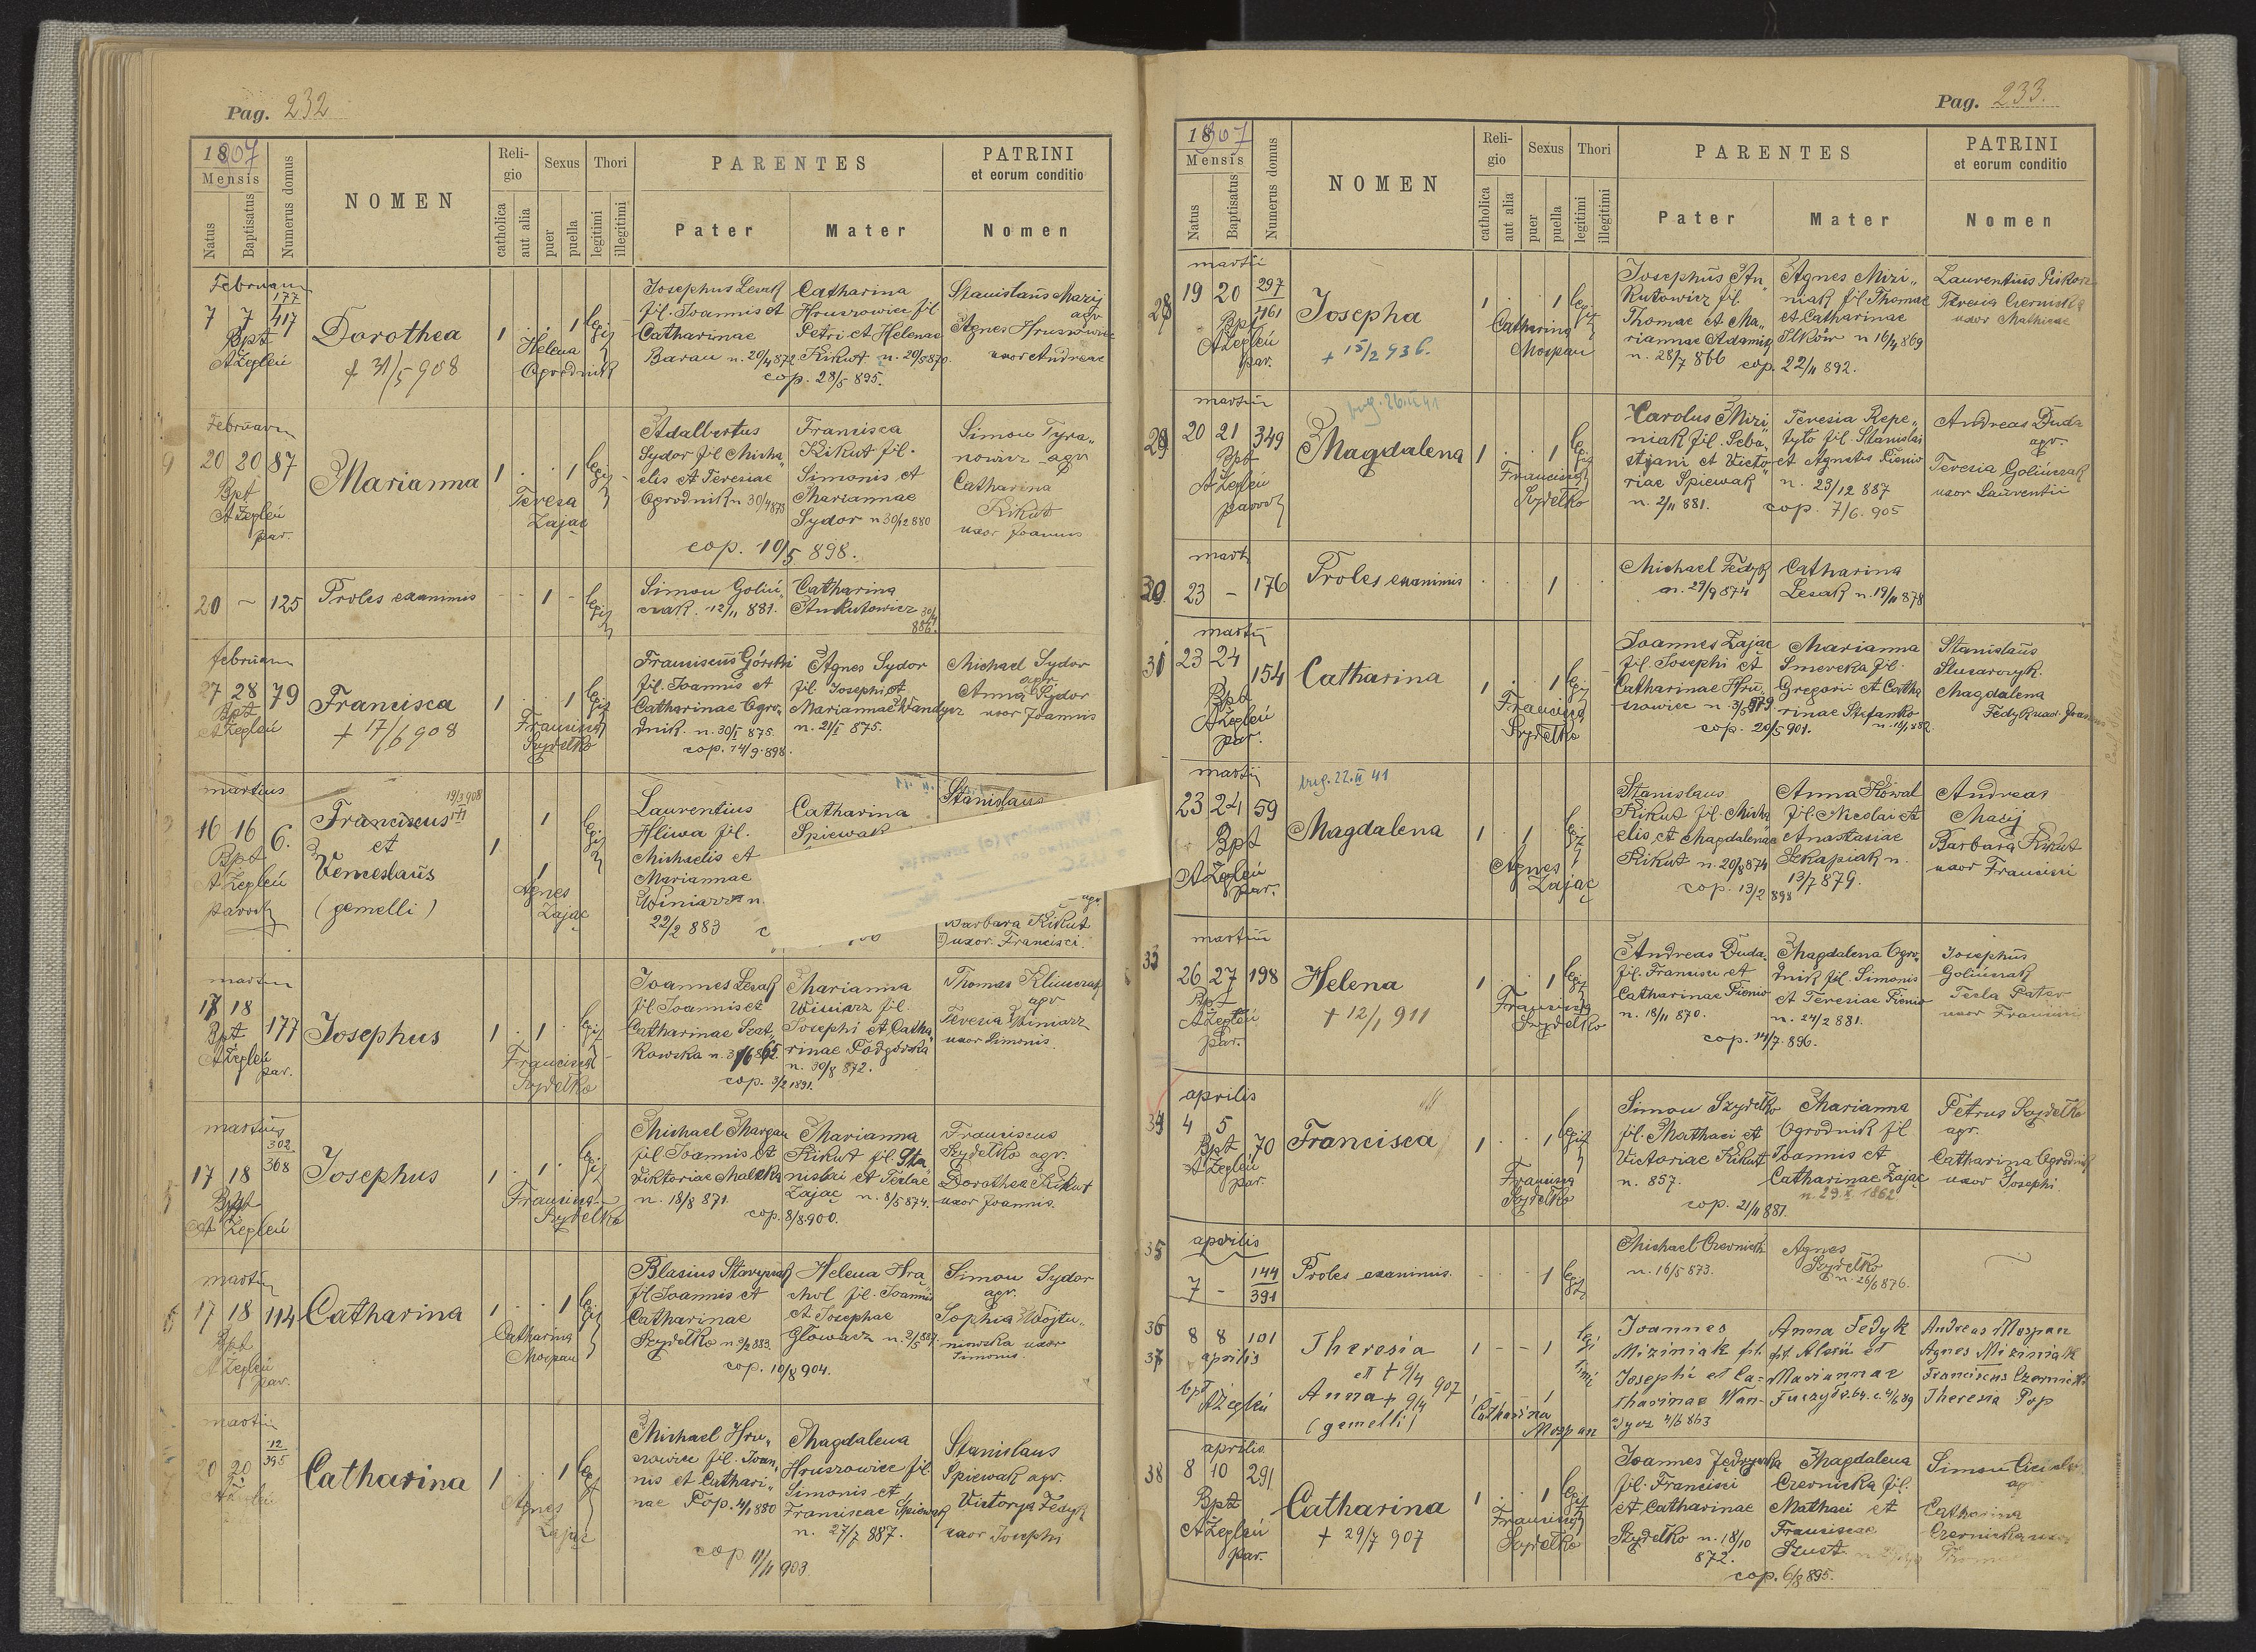 Pag. 232
1907
Mensis
Natus
Baptisatus
Numerus domus
NOMEN
Religio
catholica
aut alia
Sexus
puer
puella
Thori
legitimi
illegitimi
PARENTES
Pater
Mater
PATRINI
et eorum conditio
Nomen
7 7 177 417
Bpt
AŻegleń
Dorothea
+ 31/5 908
1 1
Helena
Ogrodnik
Josephus Lesak
fil. Joannis et
Catharinae
Baran n. 20/4 872
Catharina
Hruszowiec fil.
Petri et Helenae
Kikut n. 20/5 870.
cop. 28/5 895.
Stanislaus Mazij
agr
Agnes Hruszowiec
uxor Andreae
20 20 87
Bpt
AŻegleń
par.
Marianna
1 1
Teresa
Zając
Adalbertus
Sydor fil Micha
elis et Teresiae
Ogrodnik n 30/4 873
Francisca
Kikut fil.
Simonis et
Mariannae
Sydor n 30/12 880
cop. 10/5 898.
Simon Tyra„
nowicz agr
Catharina
Kikut
uxor Joannis
20 – 125
Proles exanimis
1
Simon Goliń„
czak. 12/11 881.
Catharina
Ankutowicz 30/4
886.
27 28 79
Bpt
AŻegleń
Francisca
+ 17/6 908
1 1
Francisca
Szydełko
Franciscus Górski
fil. Joannis et
Catharinae Ogro„
dnik. n. 30/1 875.
Agnes Sydor
fil. Josephi et
Mariannae Wandycz
n. 21/1 875.
cop. 14/9 898.
Michael Sydor
agr.
Anna Sydor
uxor Joannis
martius
16 16 6.
Bpt
AŻegleń
paroch
Franciscus
19/3 908
et
Venceslaus
(gemelli)
1 1
1
Agnes
Zając
Laurentius
Hliwa fil.
Michaelis et
Mariannae
Winiarz n.
22/2 883
Catharina
Śpiewak
Stanislaus
Barbara Kikut
uxor. Francisci.
17 18 177
Bpt
AŻegleń
par.
Josephus
1 1
Francisca
Szydełko
Joannes Lesak
fil Joannis et
Catharinae Szat„
kowska
Marianna
Winiarz fil.
Josephi et Catha
rinae Podgórska
n. 30/8 872.
cop. 3/2 1891.
Thomas Kluczak
agr
Teresia Winiarz
uxor Simonis.
martius
17 18 302 368
Bpt
AŻegleń
Josephus
1 1
Francisca
Szydełko
Michael Margan
fil Joannis et
Viktoriae Małecka
n. 18/8 871
Marianna
Kikut fil. Sta„
nislai et Teclae
Zając n. 8/5 874.
cop. 8/8 900.
Franciscus
Szydełko agr.
Dorothea Kikut
uxor Joannis.
17 18 114
Bpt
AŻegleń
par.
Catharina
1 1
Catharina
Mospan
Blasius Stavysiak
fil Joannis et
Catharinae
Szydełko n. 2/2 883.
Helena Hra„
chol fil. Joannis
et Josephae
Głowacz n. 2/5 887.
cop. 10/8 904.
Simon Sydor
agr.
Sophia Wojtu„
nowska uxor
Simonis
20 20 12 395
Catharina
1 1
Agnes
Zając
Michael Hru„
szowiec fil. Joan„
nis et Cathari„
nae Pop. 4/1 880
Magdalena
Hruszowiec fil
Simonis et
Franciscae Śpiewak
n. 27/7 887.
cop 11/11 903.
Stanislaus
Śpiewak agr.
Victorya Fedyk
uxor Josephi
Pag. 233.
1907
Mensis
Natus
Baptisatus
Numerus domus
NOMEN
Religio
catholica
aut alia
Sexus
puer
puella
Thori
legitimi
illegitimi
PARENTES
Pater
Mater
PATRINI
et eorum conditio
Nomen
martii
28 19 20 297
Bpt
AŻegleń
par.
Josepha
+ 15/2 936.
1 1
Catharina
Mospan
Josephus An„
kutowicz fil.
Thomae et Ma„
riannae Adamiq
n. 28/7 866
Agnes Mizi„
niak fil Thomae
et Catharinae
Ilków n 16/4 869
cop. 22/11 892.
Laurentius Piskorz
agr
Teresia Czernicka
uxor Mathiae
29 20 21 349
Bpt
AŻegleń
paroch
Magdalena
1 1
Francisca
Szydełko
Carolus Mizi
niak fil. Seba„
stjani et Victo„
riae Śpiewak
n. 2/11 881.
Teresia Repe„
tyło fil. Stanislai
et Agnetis Pienio
n. 23/12 887
cop. 7/6. 905
Andreas Duda
agr.
Teresia Golińczak
uxor Laurentii
30 23 – 176
Proles exanimis
1
Michael Fedyk
n. 29/9 874
Catharina
Lesak n. 19/11 878
martii
31 23 24 154
Bpt
AŻegleń
par.
Catharina
1 1
Francisca
Szydełko
Joannes Zając
fil. Josephi et
Catharinae Hru„
szowiec n. 3/5 879.
Marianna
Smereka fil.
Gregorii et Catha
rinae Stefanko
cop. 20/5 901.
Stanislaus
Ślusarczyk.
Magdalena
Fedyk uxor
martii
23 24 59
Bpt
AŻegleń
par.
brg. 22.II 41
Magdalena
1 1
Agnes
Zając
Stanislaus
Kikut fil. Micha
elis et Magdalenae
Kikut n. 20/8 874
Anna Kowal
fil. Nicolai et
Anastasiae
Szkapiak n.
13/7 879.
cop. 13/2 898
Andreas
Mazij
Barbara Kikut
uxor Francisci
33 26 27 198
Bpt
AŻegleń
par.
Helena
+ 12/1 911
1 1
Francisca
Szydełko
Andreas Duda.
fil. Francisci et
Catharinae Pienio
n. 18/11 870.
Magdalena Ogro„
dnik fil. Simonis
et Teresiae Pienio
n. 24/2 881.
cop. 14/7. 896.
Josephus
Golińczak
Tecla Pater
uxor Francisci
aprilis
34 4 5 70
Bpt
AŻegleń
par.
Francisca
1 1
Francisca
Szydełko
Simon Szydełko
fil. Mathaei et
Victoriae Kikut
n. 857.
Marianna
Ogrodnik fil
Joannis et
Catharinae Zając
n. 29.X 1862
cop. 21/11 881.
Petrus Szydełko
agr.
Catharina Ogrodnik
uxor Josephi
35 aprilis
7 – 144 391
Proles exanimis.
1
Michael Czernicki
n. 16/5 873.
Agnes
Szydełko
n. 26/1 876.
36 8 8 101
37 aprilis
bpt AŻegleń
Theresia
et + 9/4 907
Anna + 9/4
(gemelli)
1 – – 1
legitimi
Catharina
Mospan
Joannes
Miziniak fil.
Josephi et Ca=
tharinae Wan-
dycz 4/6 863
Anna Fedyk
fil. Alexii et
Mariannae
Andreas Mospan
Agnes Miziniak
Franciscus Czernicki
Theresia Pop
aprilis
38 8 10 291
Bpt
AŻegleń
par.
Catharina
+ 29/7 907
1 1
Francisca
Szydełko
Joannes Jędryszka
fil. Francisci
et Catharinae
Szydełko n. 18/10
872.
Magdalena
Czernicka fil.
Mathaei et
Franciscae
Szust
cop. 6/8 895.
Simon
Catharina
Czernicka uxor